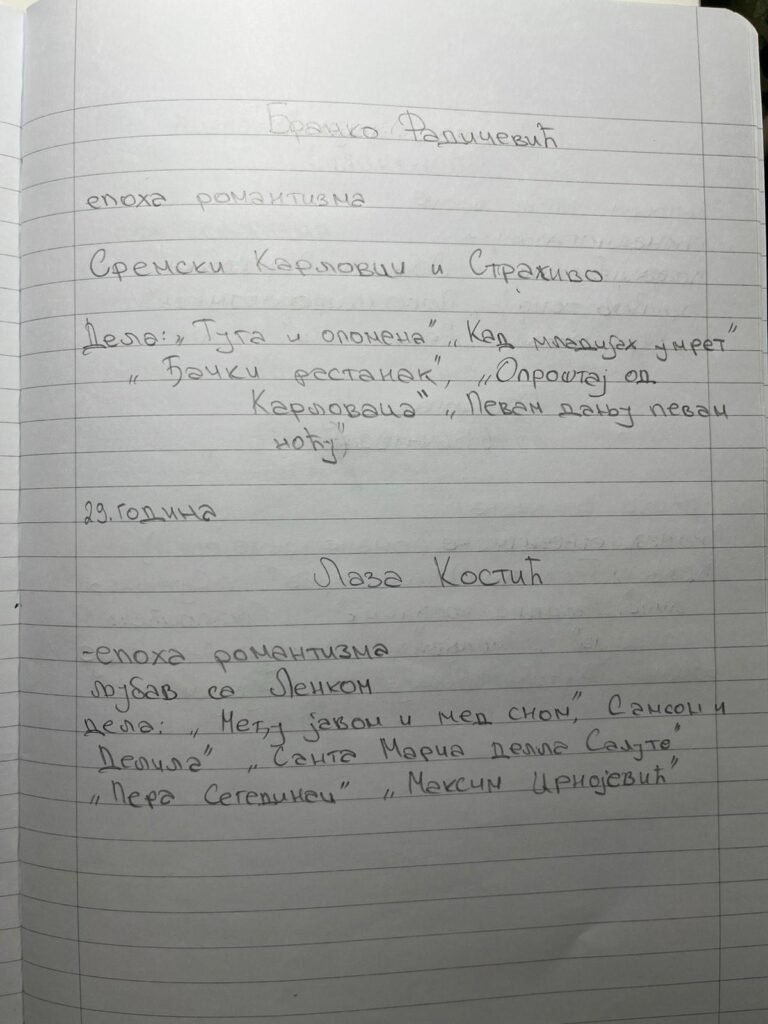 Бранко Радичевић
епоха романтизма
Сремски Карловци и Страживо
Дела: „Туга и опомена" „Кад млидијах умрет"
„Ђачки растанак", „Опроштај од
Карловаца" „Певам дању певам
ноћу",
29. година
Лаза Костић
-епоха романтизма
љубав са Ленком
дела: „Међу јавом и мед сном", Самсон и
Делила" „Санта Мариа делла Салуте"
„Пера Сегединац" „Максим Црнојевић"